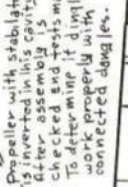 Propeller with stabilate
is inverted in this cavity
After assembly is
checked end tests m
To determine if dingl
work properly with
connected dangles.